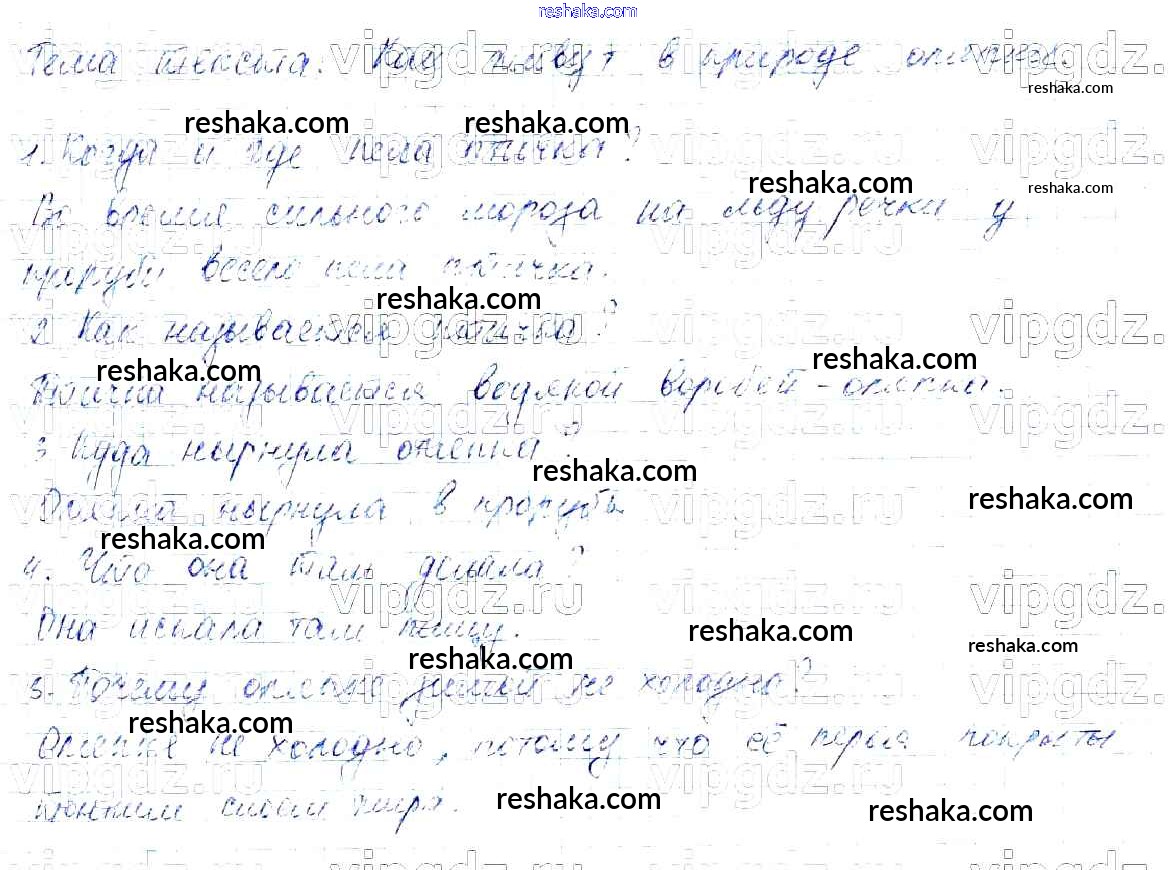 reshaka.com
Тема текста: Как живут в природе оляпки.
1. Когда и где пела птичка?
Во время сильного мороза на льду речки у
проруби весело пела птичка.
2 Как называется птичка?
Птичка называется водяной воробей - оляпка.
3 Куда нырнула оляпка?
Оляпка нырнула в прорубь
4. Что она там делала?
Она искала там пищу.
5. Почему оляпке зимой не холодно?
Оляпке не холодно, потому что её перья покрыты
тонким слоем жира.